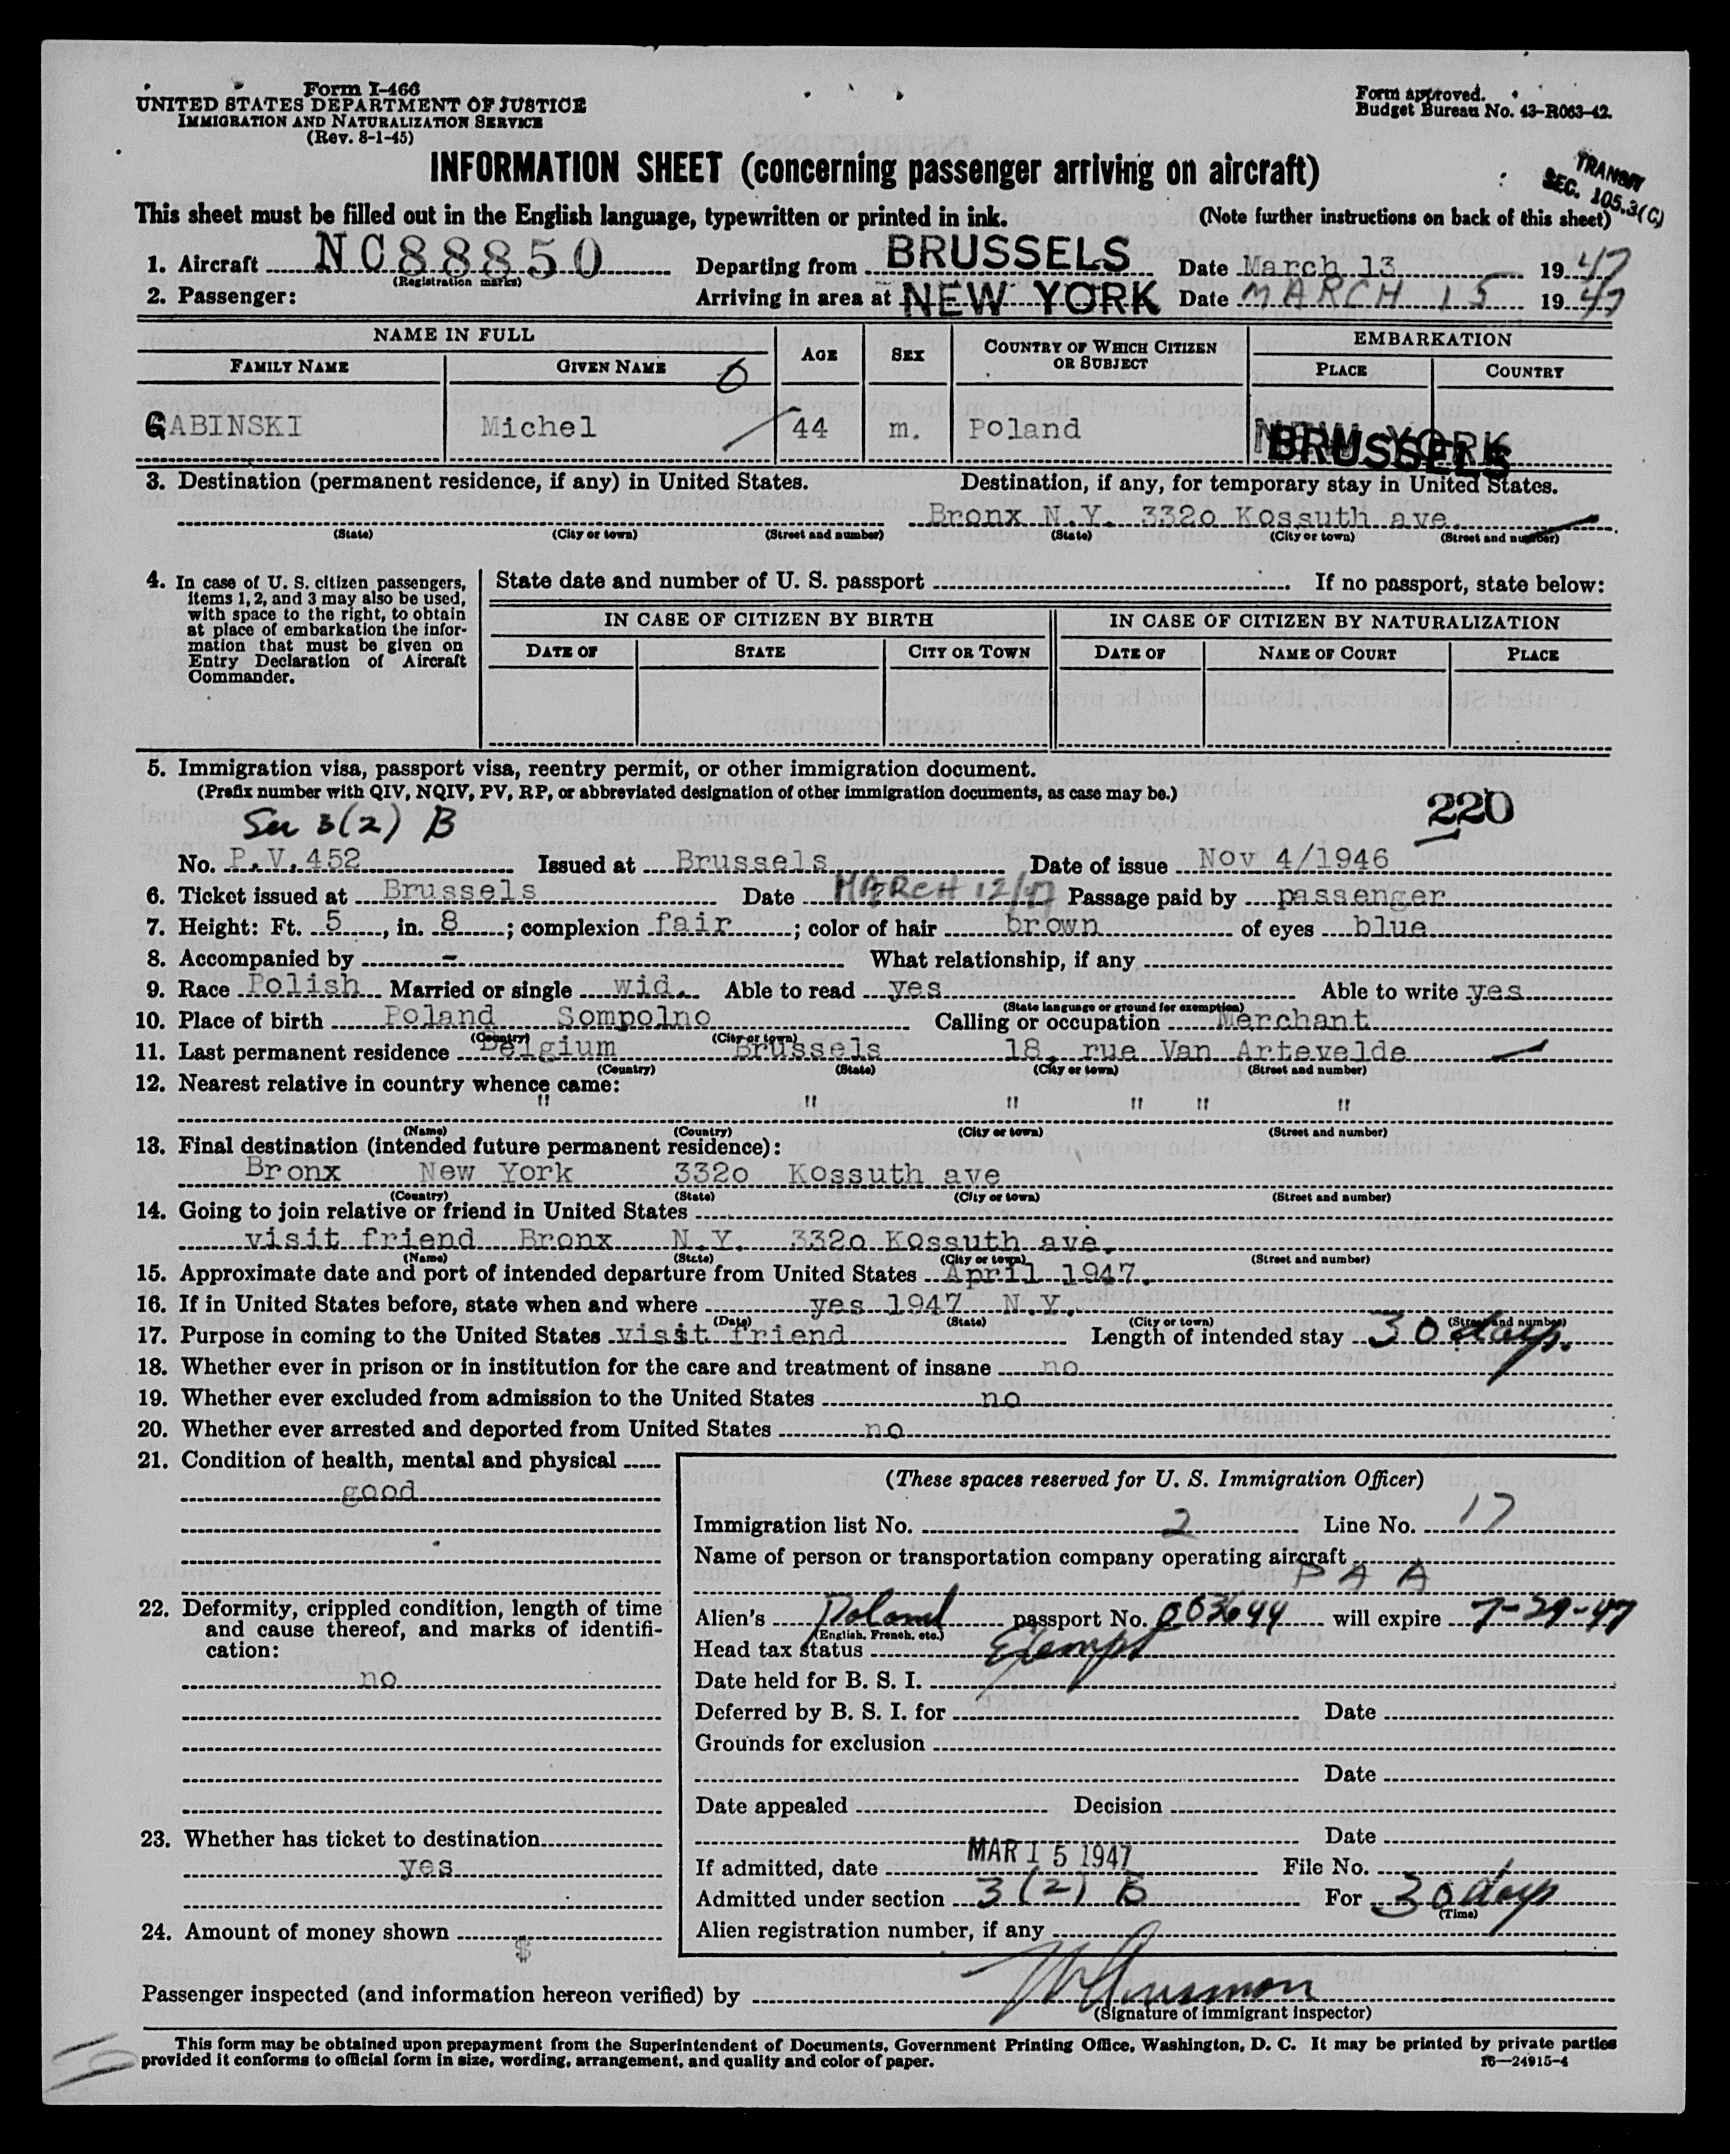 Form I-466
UNITED STATES DEPARTMENT OF JUSTICE
IMMIGRATION AND NATURALIZATION SERVICE
(Rev. 8-1-45)
Form approved.
Budget Bureau No. 43-R063-42.
INFORMATION SHEET (concerning passenger arriving on aircraft)
TRANSIT
SEC. 105.3(C)
This sheet must be filled out in the English language, typewritten or printed in ink. (Note further instructions on back of this sheet)
1. Aircraft NC88850 Departing from BRUSSELS Date March 13 1947
(Registration marks)
2. Passenger: Arriving in area at NEW YORK Date MARCH 15 1947
NAME IN FULL AGE SEX COUNTRY OF WHICH CITIZEN OR SUBJECT EMBARKATION
FAMILY NAME GIVEN NAME PLACE COUNTRY
GABINSKI Michel 44 m. Poland NEW YORK BRUSSELS
3. Destination (permanent residence, if any) in United States. Destination, if any, for temporary stay in United States.
Bronx N.Y. 332o Kossuth ave.
(State) (City or town) (Street and number) (State) (City or town) (Street and number)
4. In case of U. S. citizen passengers, items 1, 2, and 3 may also be used, with space to the right, to obtain at place of embarkation the information that must be given on Entry Declaration of Aircraft Commander.
State date and number of U. S. passport If no passport, state below:
IN CASE OF CITIZEN BY BIRTH IN CASE OF CITIZEN BY NATURALIZATION
DATE OF STATE CITY OR TOWN DATE OF NAME OF COURT PLACE
5. Immigration visa, passport visa, reentry permit, or other immigration document.
(Prefix number with QIV, NQIV, PV, RP, or abbreviated designation of other immigration documents, as case may be.)
Sec 3(2) B 220
No. P.V.452 Issued at Brussels Date of issue Nov 4/1946
6. Ticket issued at Brussels Date MARCH 12/47 Passage paid by passenger
7. Height: Ft. 5, in. 8; complexion fair; color of hair brown of eyes blue
8. Accompanied by - What relationship, if any
9. Race Polish Married or single wid. Able to read yes Able to write yes
(State language or ground for exemption)
10. Place of birth Poland Sompolno Calling or occupation Merchant
(Country) (City or town)
11. Last permanent residence Belgium Brussels 18, rue Van Artevelde
(Country) (State) (City or town) (Street and number)
12. Nearest relative in country whence came:
" " " " " "
(Name) (Country) (City or town) (Street and number)
13. Final destination (intended future permanent residence):
Bronx New York 332o Kossuth ave
(Country) (State) (City or town) (Street and number)
14. Going to join relative or friend in United States
visit friend Bronx N.Y. 332o Kossuth ave.
(Name) (State) (City or town) (Street and number)
15. Approximate date and port of intended departure from United States April 1947.
16. If in United States before, state when and where yes 1947 N.Y.
(Date) (State) (City or town) (Street and number)
17. Purpose in coming to the United States visit friend Length of intended stay 30 days.
18. Whether ever in prison or in institution for the care and treatment of insane no
19. Whether ever excluded from admission to the United States no
20. Whether ever arrested and deported from United States no
21. Condition of health, mental and physical
good
22. Deformity, crippled condition, length of time and cause thereof, and marks of identification:
no
23. Whether has ticket to destination
yes
24. Amount of money shown
$
(These spaces reserved for U. S. Immigration Officer)
Immigration list No. 2 Line No. 17
Name of person or transportation company operating aircraft
P A A
Alien's Poland passport No. 003644 will expire 7-29-47
(English, French, etc.)
Head tax status Exempt
Date held for B. S. I.
Deferred by B. S. I. for Date
Grounds for exclusion
Date
Date appealed Decision
Date
If admitted, date MAR 15 1947 File No.
Admitted under section 3(2) B For 30 days
(Time)
Alien registration number, if any
Passenger inspected (and information hereon verified) by
(Signature of immigrant inspector)
This form may be obtained upon prepayment from the Superintendent of Documents, Government Printing Office, Washington, D. C. It may be printed by private parties
provided it conforms to official form in size, wording, arrangement, and quality and color of paper. 16—24915-4